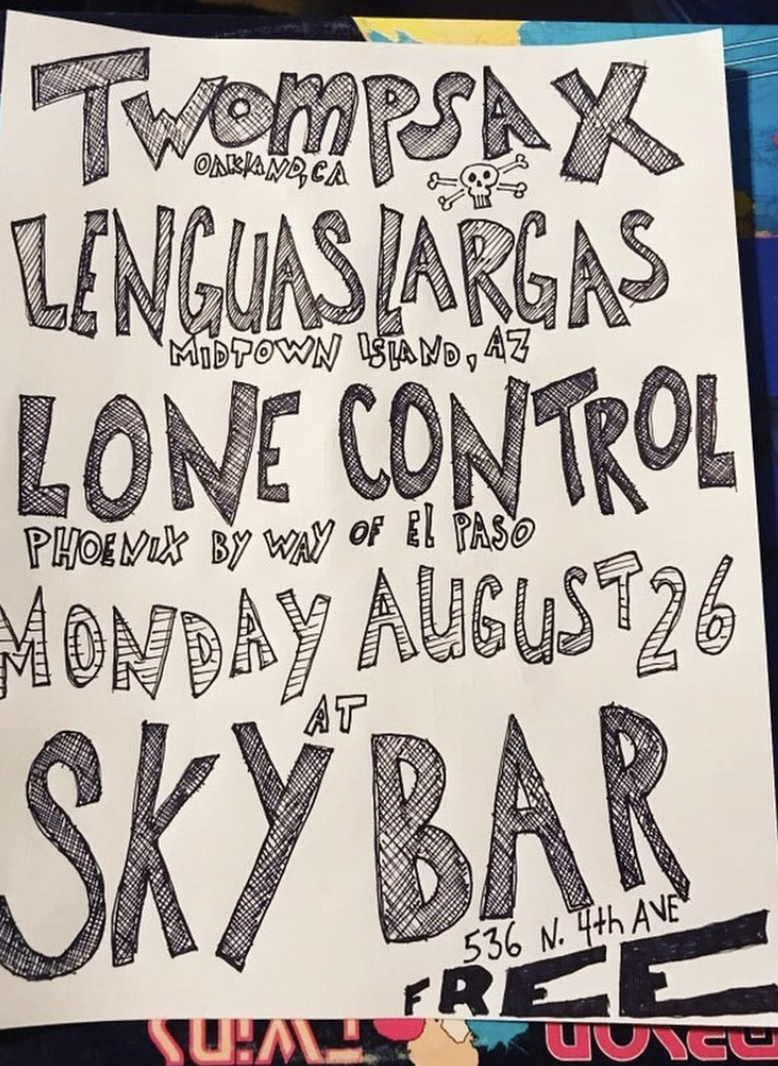 TWOMPSAX
OAKLAND, CA
LENGUAS LARGAS
MIDTOWN ISLAND, AZ
LONE CONTROL
PHOENIX BY WAY OF EL PASO
MONDAY AUGUST 26
AT
SKY BAR
536 N. 4th AVE
FREE